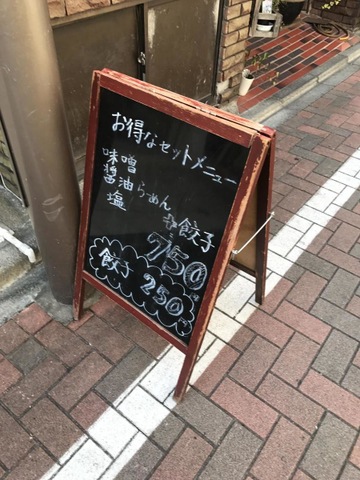 お得なセットメニュー
味噌
醤油らぁめん
塩
餃子
750
餃子 250円